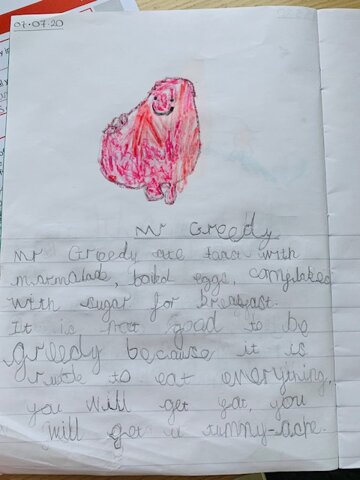 07.07.20
Mr Greedy
Mr Greedy ate toast with
marmalade, boiled eggs, cornflakes
with sugar for breakfast.
It is not good to be
greedy because it is
rude to eat everything,
you will get fat, you
will get a tummy-ache.